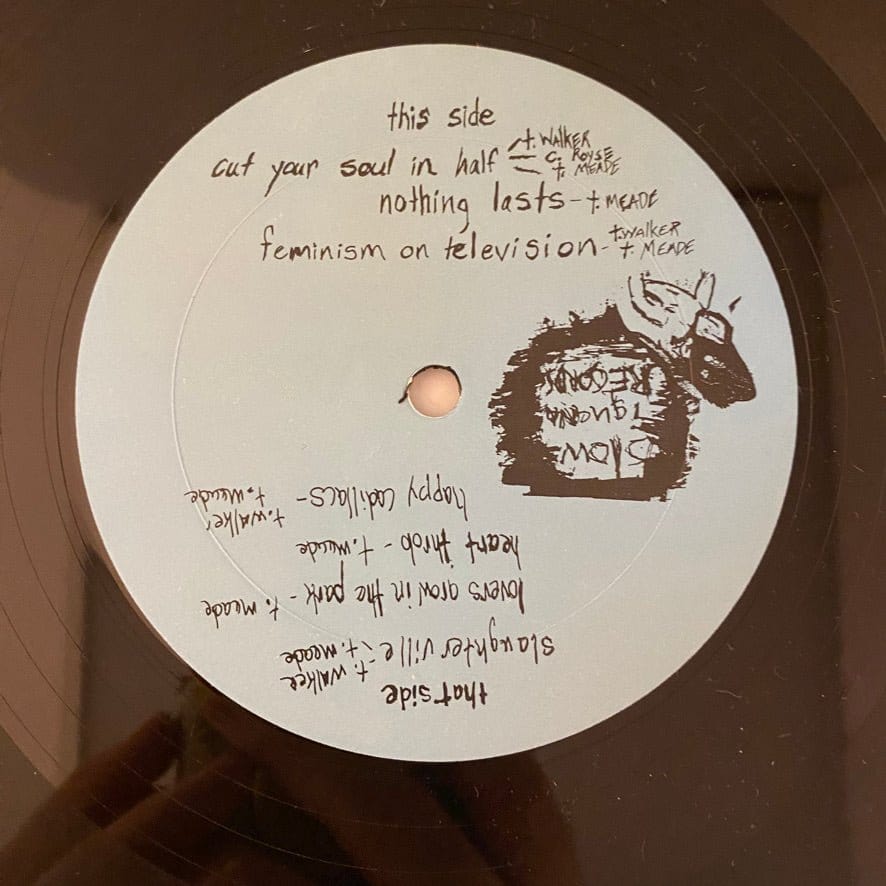 this side
cut your soul in half - t. WALKER
- C. ROYSE
- t. MEADE
nothing lasts - t. MEADE
feminism on television - t. WALKER
t. MEADE
SLOW
IGUANA
RECORDS
that side
slaughterville - t. walker
t. meade
lovers grow in the park - t. meade
heart throb - t. meade
happy cadillacs - t. walker
t. meade